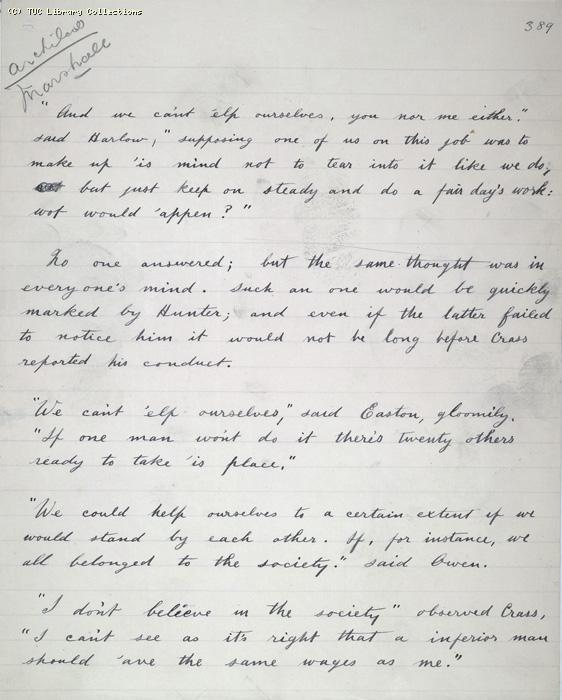 (C) TUC Library Collections
389
Marshall
"And we can't 'elp ourselves, you nor me either."
said Harlow, "supposing one of us on this job was to
make up 'is mind not to tear into it like we do,
but just keep on steady and do a fair day's work:
wot would 'appen?"
No one answered; but the same thought was in
everyone's mind. Such an one would be quickly
marked by Hunter; and even if the latter failed
to notice him it would not be long before Crass
reported his conduct.
"We can't 'elp ourselves," said Easton, gloomily.
"If one man won't do it there's twenty others
ready to take 'is place."
"We could help ourselves to a certain extent if we
would stand by each other. If, for instance, we
all belonged to the society." said Owen.
"I don't believe in the society" observed Crass,
"I can't see as it's right that a inferior man
should 'ave the same wages as me."